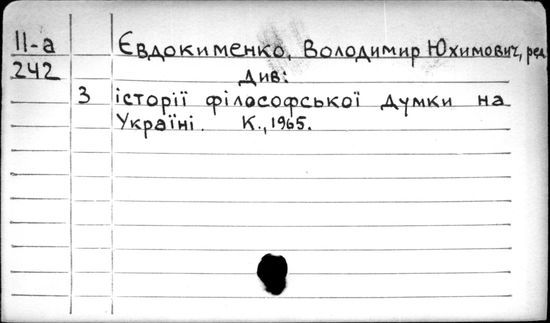 II-а Євдокименко, Володимир Юхимович, ред
242 Див:
З історії філософської думки на
Україні. К., 1965.